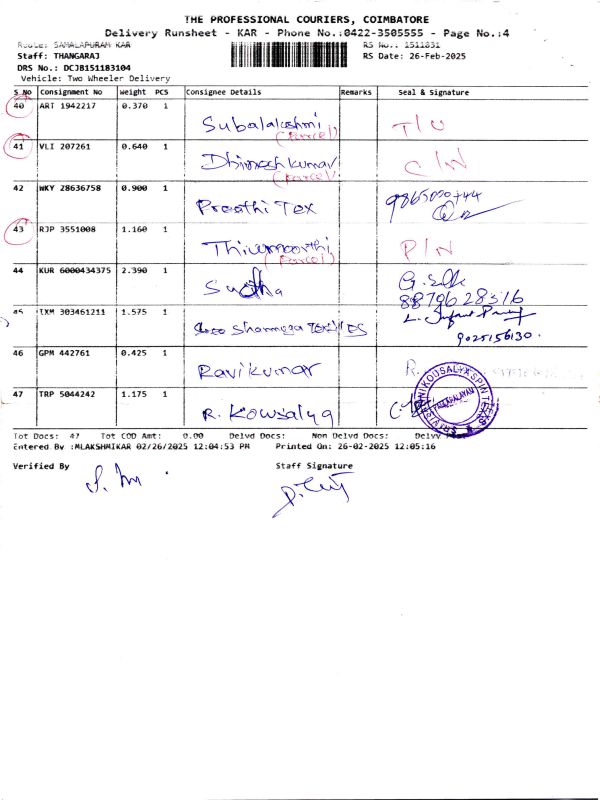 THE PROFESSIONAL COURIERS, COIMBATORE
Delivery Runsheet - KAR - Phone No.:0422-3505555 - Page No.:4
Route: SAMALAPURAM KAR RS No.: 1511831
Staff: THANGARAJ RS Date: 26-Feb-2025
DRS No.: DCJB151183104
Vehicle: Two Wheeler Delivery
S No Consignment No Weight PCS Consignee Details Remarks Seal & Signature
40 ART 1942217 0.370 1
Subalakshmi T/U
(Parcel)
41 VLI 207261 0.640 1
Dhineshkumar C/N
(Parcel)
42 WKY 28636758 0.900 1
Preethi Tex
43 RJP 3551008 1.160 1
Thirumoorthi P/N
(Parcel)
44 KUR 6000434375 2.390 1
Sudha 8879628316
45 IXM 303461211 1.575 1
9025156130.
46 GPM 442761 0.425 1
Ravikumar R.
47 TRP 5044242 1.175 1
R. Kowsalya
Tot Docs: 47 Tot COD Amt: 0.00 Delvd Docs: Non Delvd Docs:
Entered By :MLAKSHMIKAR 02/26/2025 12:04:53 PM Printed On: 26-02-2025 12:05:16
Verified By Staff Signature